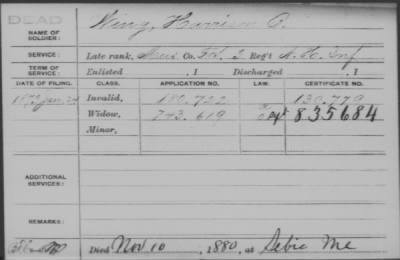 DEAD
NAME OF SOLDIER: Wing, Harrison O.
SERVICE: Late rank, Mus. Co. F.S. 2 Reg't N.H. Inf
TERM OF SERVICE: Enlisted , 1 Discharged , 1
DATE OF FILING. CLASS. APPLICATION NO. LAW. CERTIFICATE NO.
1873 Jan. 24 Invalid, 180.722 130.779
Widow, 743.619 835684
Minor,
ADDITIONAL SERVICES:
REMARKS:
Died Nov 10 , 1880, at Sebic Me